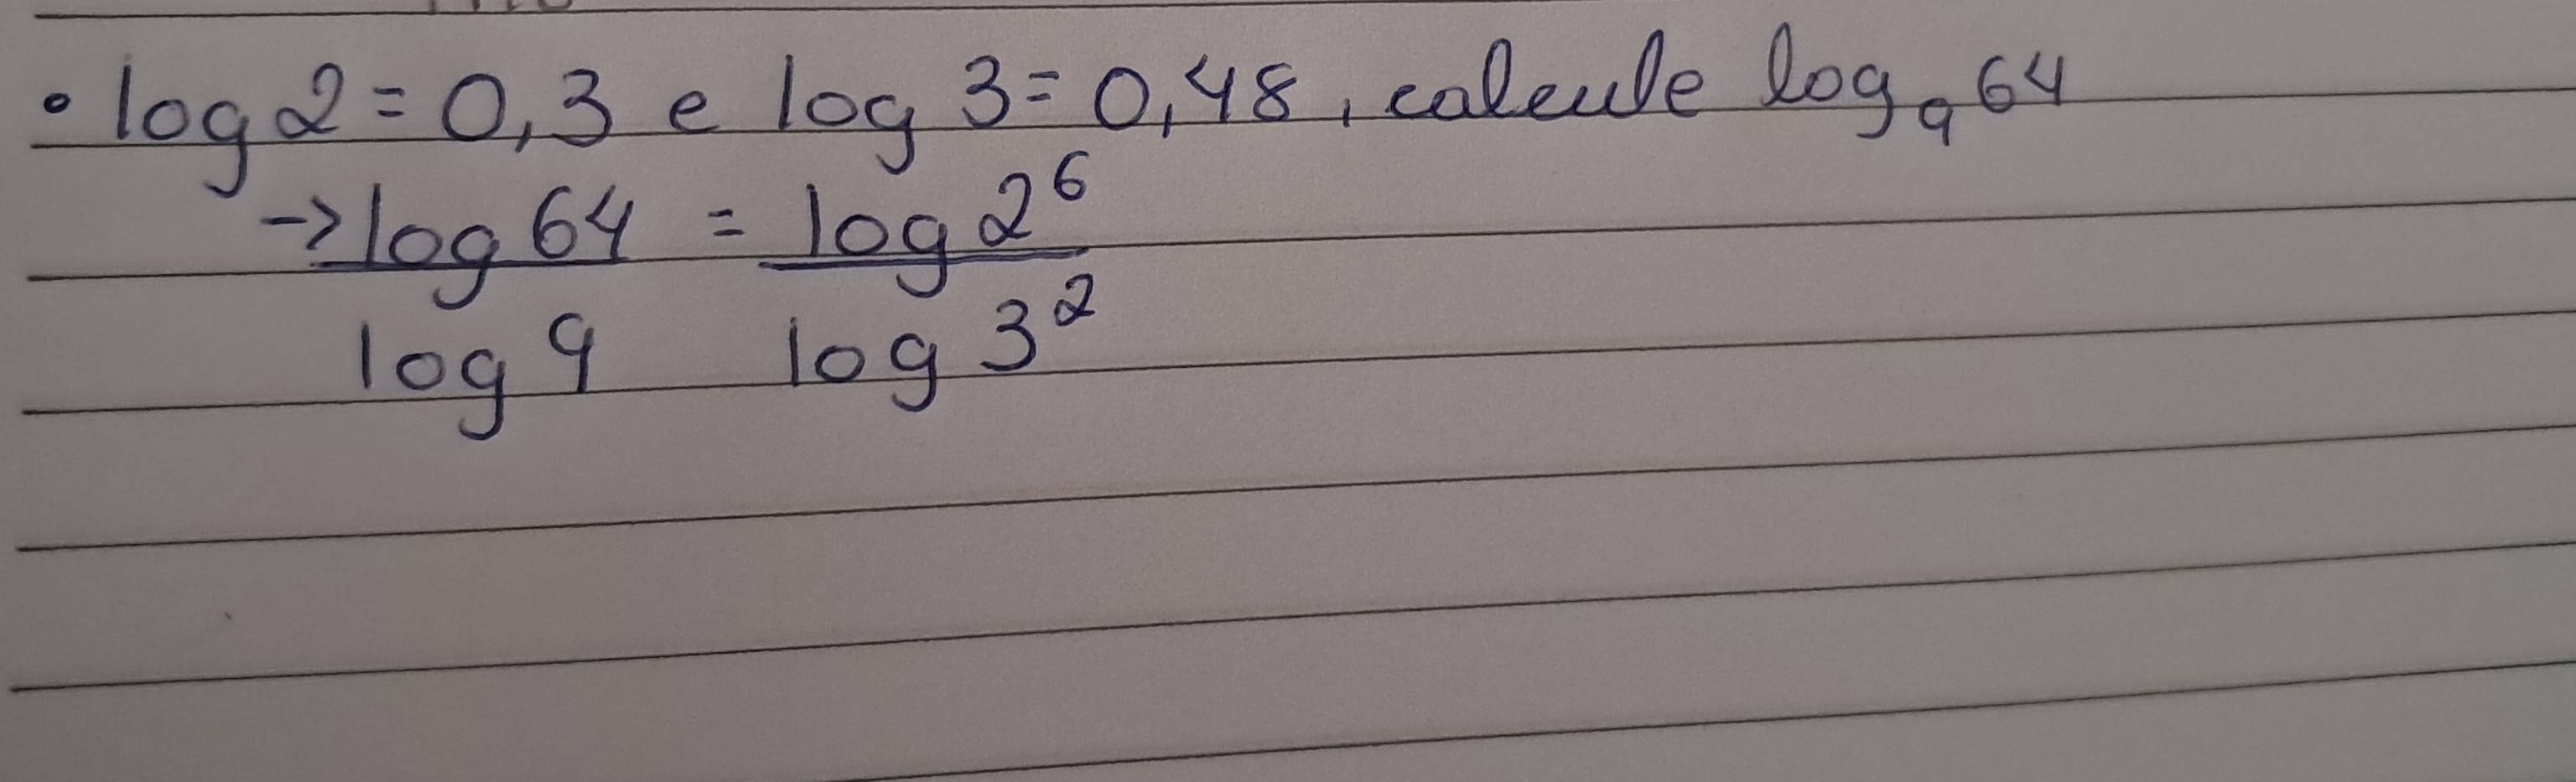 • log 2 = 0,3 e log 3 = 0,48, calcule log₉ 64
→ log 64 = log 2⁶
log 9 log 3²